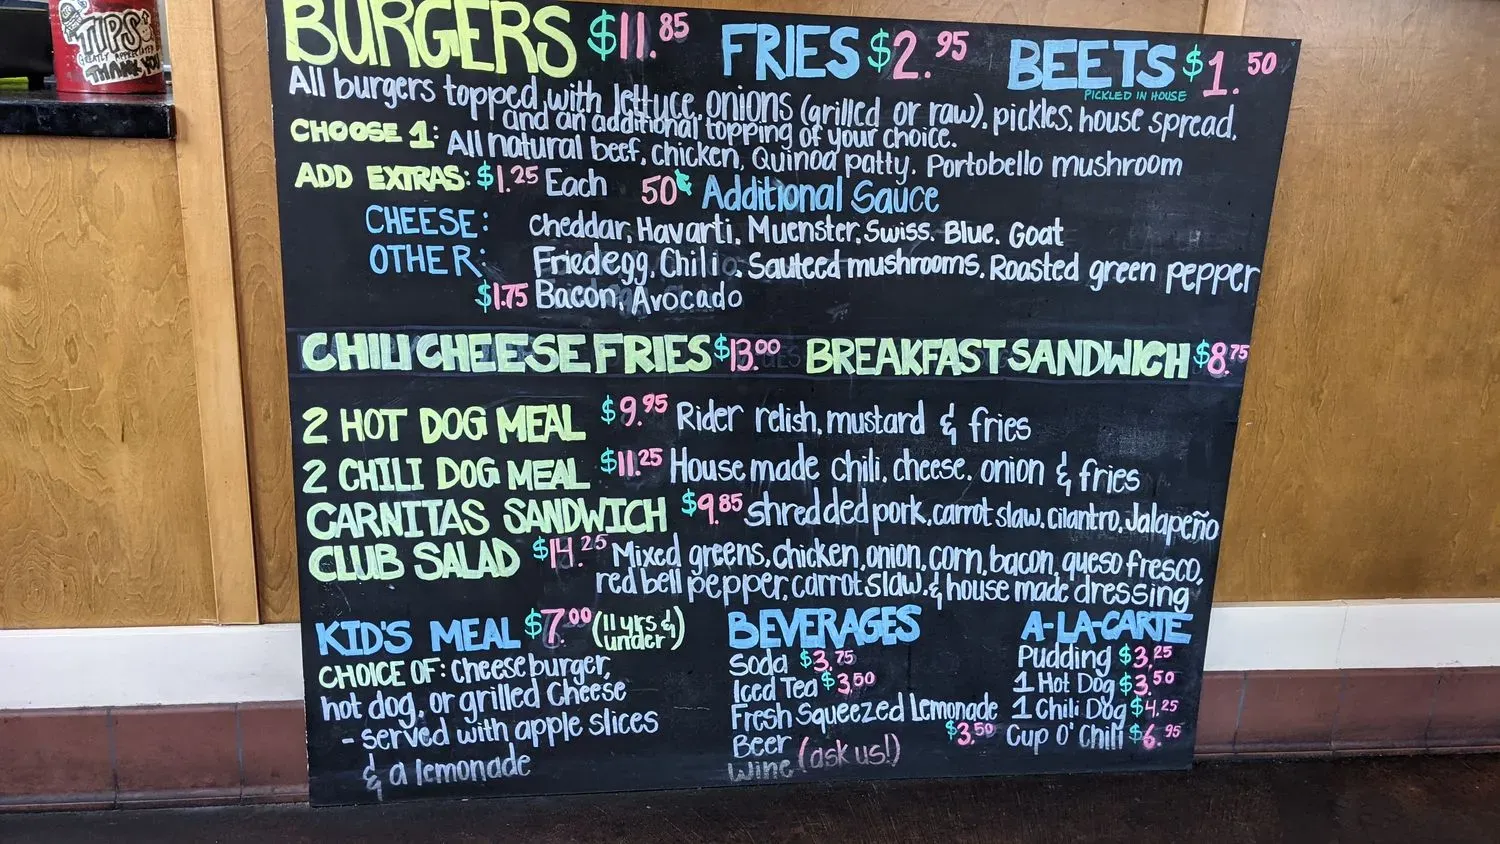 TIPS
GREATLY APPRECIATED
THANK YOU
BURGERS $11.85 FRIES $2.95 BEETS $1.50
PICKLED IN HOUSE
All burgers topped with lettuce, onions (grilled or raw), pickles, house spread,
and an additional topping of your choice.
CHOOSE 1: All natural beef, chicken, Quinoa patty, Portobello mushroom
ADD EXTRAS: $1.25 Each 50¢ Additional Sauce
CHEESE: Cheddar, Havarti, Muenster, Swiss, Blue, Goat
OTHER: Fried egg, Chili, Sauteed mushrooms, Roasted green pepper
$1.75 Bacon, Avocado
CHILI CHEESE FRIES $13.00 BREAKFAST SANDWICH $8.75
2 HOT DOG MEAL $9.95 Rider relish, mustard & fries
2 CHILI DOG MEAL $11.25 House made chili, cheese, onion & fries
CARNITAS SANDWICH $9.85 Shredded pork, carrot slaw, cilantro, Jalapeño
CLUB SALAD $14.25 Mixed greens, chicken, onion, corn, bacon, queso fresco,
red bell pepper, carrot slaw, & house made dressing
KID'S MEAL $7.00 (11 yrs & under)
CHOICE OF: Cheeseburger,
hot dog, or grilled cheese
- served with apple slices
& a lemonade
BEVERAGES
Soda $3.75
Iced Tea $3.50
Fresh Squeezed Lemonade
$3.50
Beer (ask us!)
Wine
A-LA-CARTE
Pudding $3.25
1 Hot Dog $3.50
1 Chili Dog $4.25
Cup O' Chili $6.95